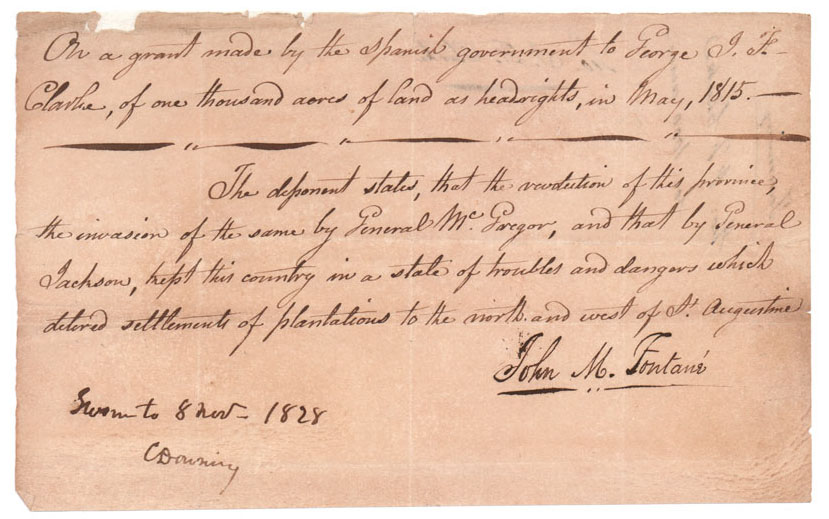 On a grant made by the Spanish government to George J. F.
Clarke, of one thousand acres of land as headrights, in May, 1815. —
The deponent states, that the revolution of this province,
the invasion of the same by General Mc. Gregor, and that by General
Jackson, kept this country in a state of troubles and dangers which
detered settlements of plantations to the north and west of St. Augustine
John M. Fontané
Sworn to 8 Nov- 1828
C Downing